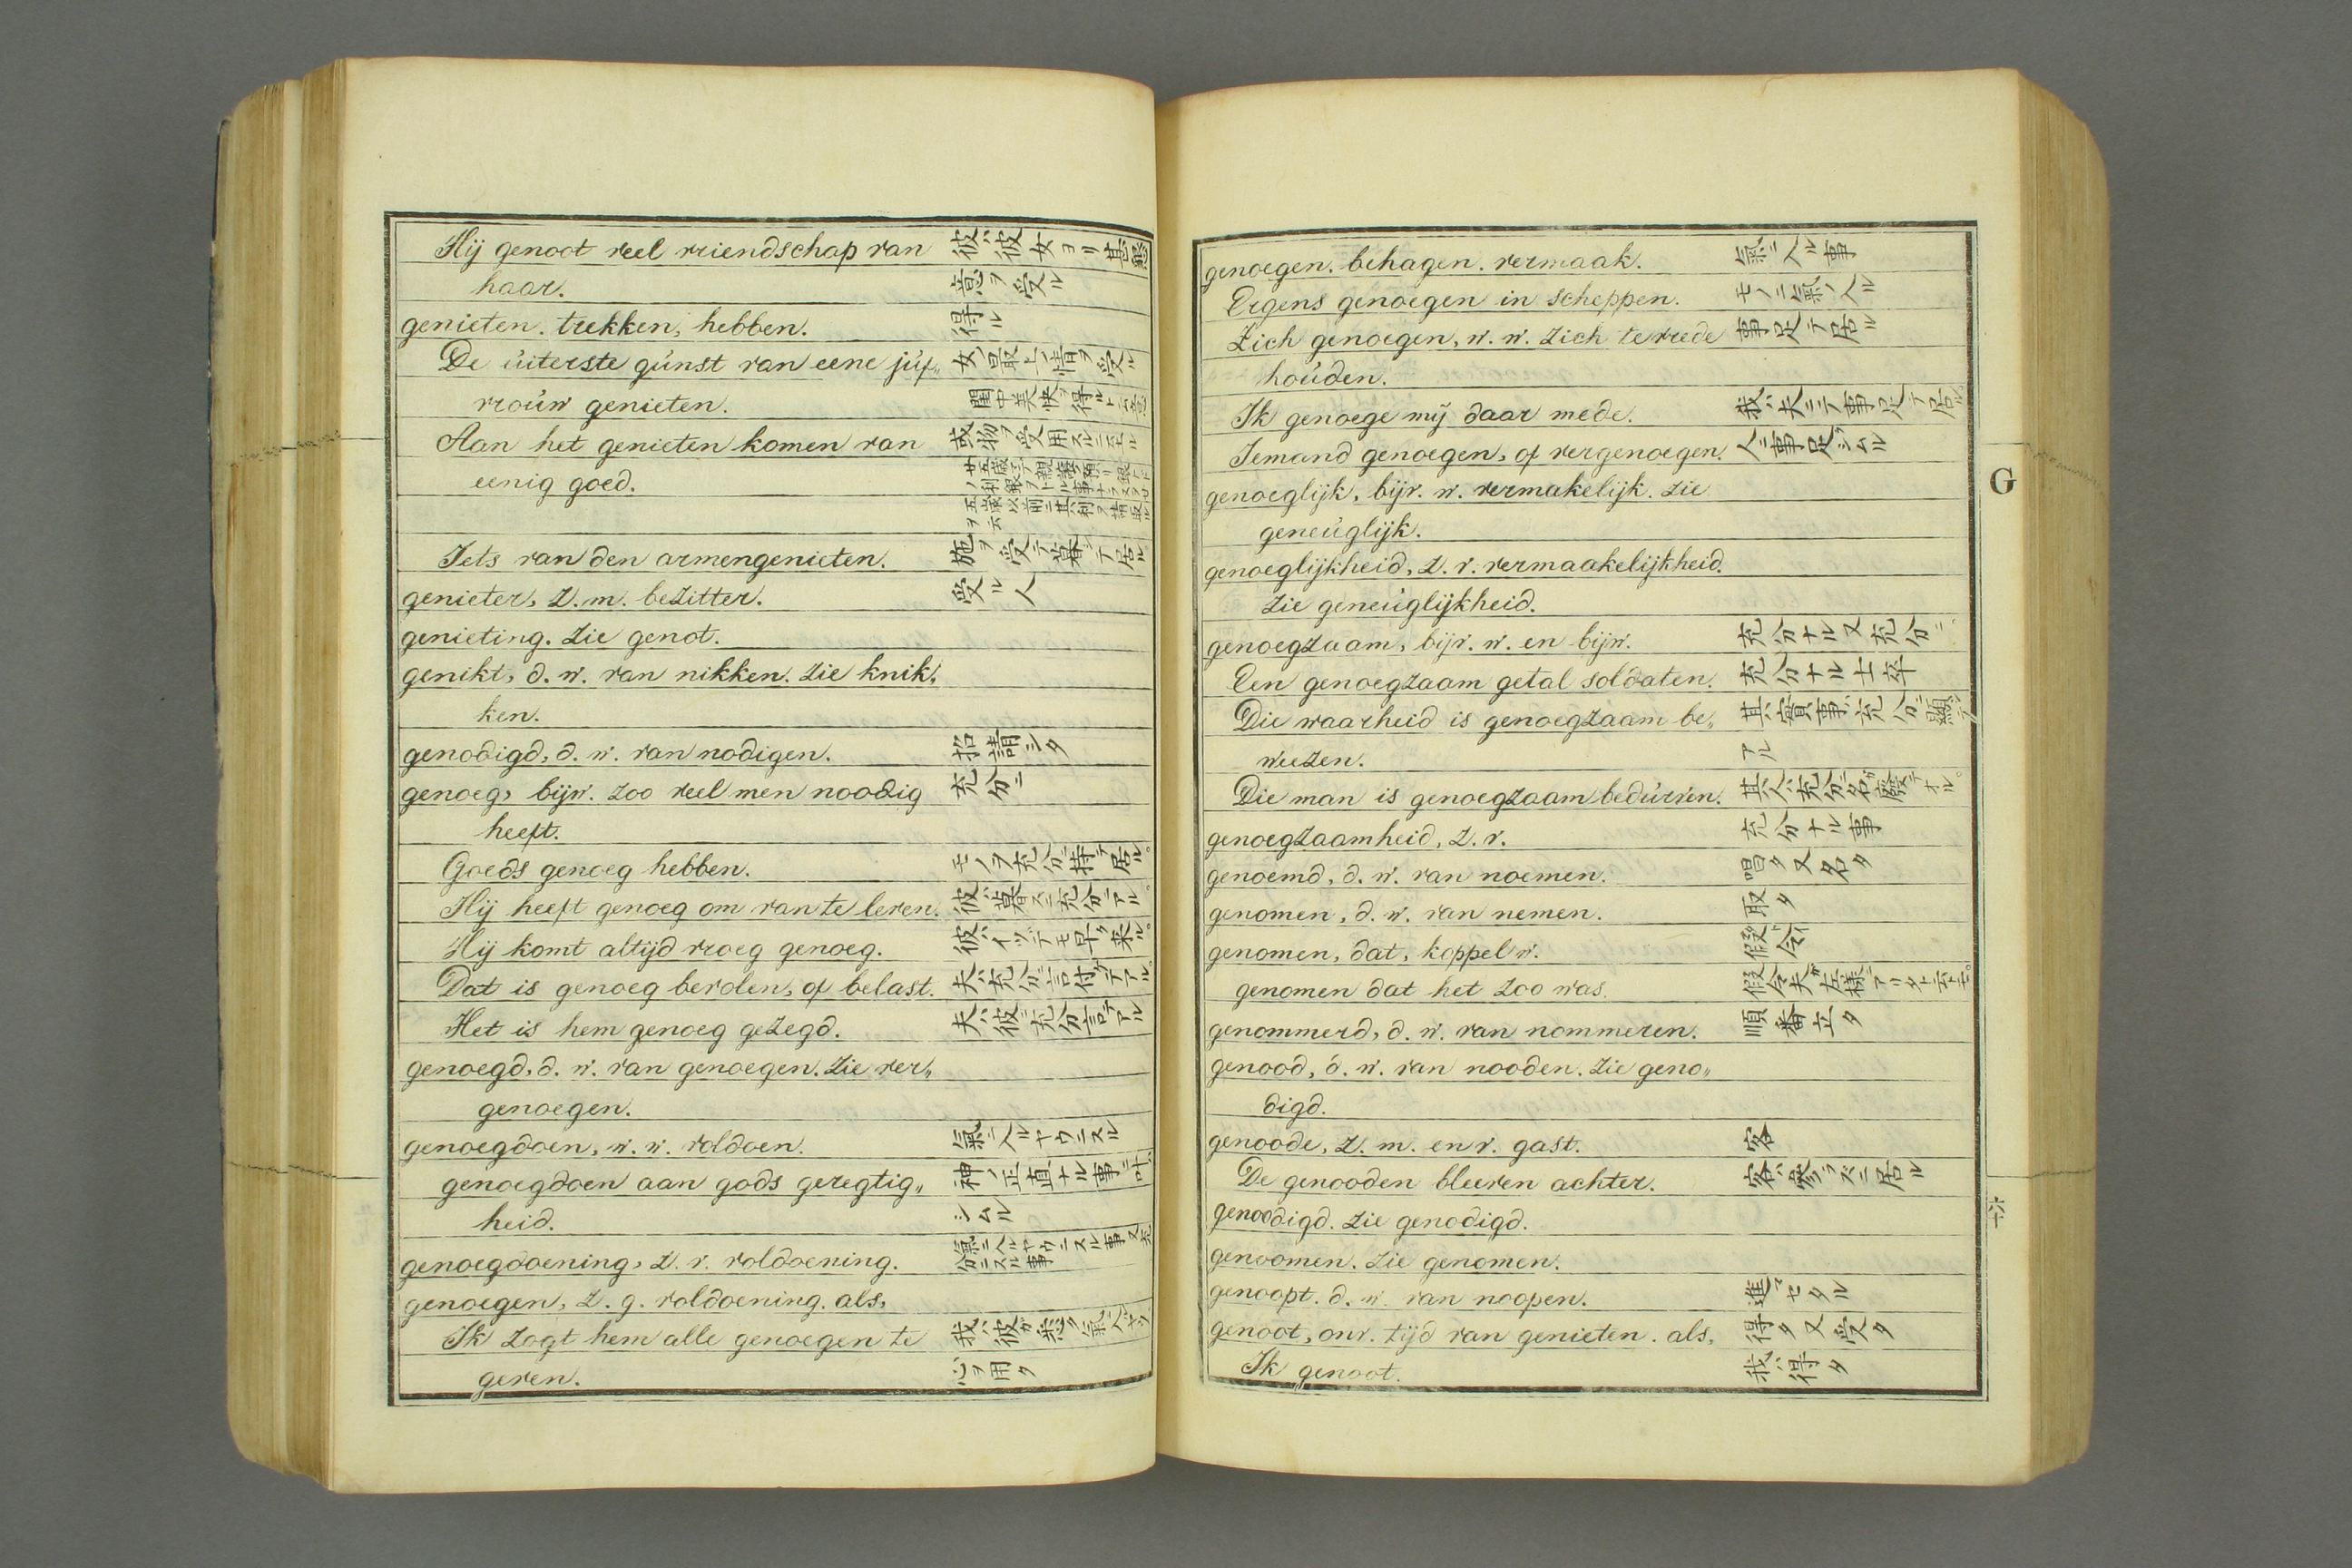 Hij genoot veel vriendschap van 彼ハ彼女ヨリ甚懇
haar. 意ヲ受ル
genieten. trekken, hebben. 得ル
De uiterste gunst van eene juf„ 女ノ最上ノ情ヲ受ル
vrouw genieten.
Aan het genieten komen van 或物ヲ受用スルニ至ル
eenig goed.
Iets van den armengenieten. 施ヲ受テ暮シテ居ル
genieter, z. m. bezitter. 受ル人
genieting. zie genot.
genikt, d. w. van nikken. zie knik„
ken.
genodigd, d. w. van nodigen. 招請シタ
genoeg, bijw. zoo veel men noodig 充分ニ
heeft.
Goeds genoeg hebben. モノヲ充分ニ持テ居ル。
Hij heeft genoeg om van te leven. 彼ハ暮スニ充分テアル。
Hij komt altijd vroeg genoeg. 彼ハイツデモ早ク来ル。
Dat is genoeg bevolen, of belast. 夫ハ充分ニ言付テアル。
Het is hem genoeg gezegd. 夫ハ彼ニ充分言テアル
genoegd, d. w. van genoegen. zie ver„
genoegen.
genoegdoen, w. w. voldoen. 氣ニ入ルヤウニスル
genoegdoen aan gods geregtig„ 神ノ正直ナル事ニ叶ハ
heid. シムル
genoegdoening, z. v. voldoening. 氣ニ入ルヤウニスル事又充
分ニスル事
genoegen, z. g. voldoening. als,
Ik zogt hem alle genoegen te
geven. 心ヲ用タ
genoegen. behagen. vermaak. 氣ニ入ル事
Ergens genoegen in scheppen. モノニ氣ノ入ル
Zich genoegen, w. w. zich te vrede 事足テ居ル
houden.
Ik genoege mij daar mede. 我ハ夫ニテ事足テ居ル。
Iemand genoegen, of vergenoegen. 人ニ事足ラシムル
genoeglijk, bijv. w. vermakelijk. zie
geneuglijk.
genoeglijkheid, z. v. vermaakelijkheid.
zie geneuglijkheid.
genoegzaam, bijv. w. en bijw. 充分ナル又充分ニ
Een genoegzaam getal soldaten. 充分ナル士卒
Die waarheid is genoegzaam be„ 其實事ハ充分ニ顕シテ
weezen. アル
Die man is genoegzaam bedurven.
genoegzaamheid, z. v. 充分ナル事
genoemd, d. w. van noemen. 唱タ又名タ
genomen, d. w. van nemen. 取タ
genomen, dat, koppel w. 假令
genomen dat het zoo was. 假令夫ガ左様デアリタト云トモ。
genommerd, d. w. van nommeren. 順番立タ
genood, d. w. van nooden. zie geno„
digd.
genoode, z. m. en v. gast. 客
De genooden bleeven achter. 客ハ参ラズニ居ル
genoodigd. zie genodigd.
genoomen. zie genomen.
genoopt. d. w. van noopen. 進マセタル
genoot, onv. tijd van genieten. als, 得タ又受タ
Ik genoot. 我ハ得タ
G
十六